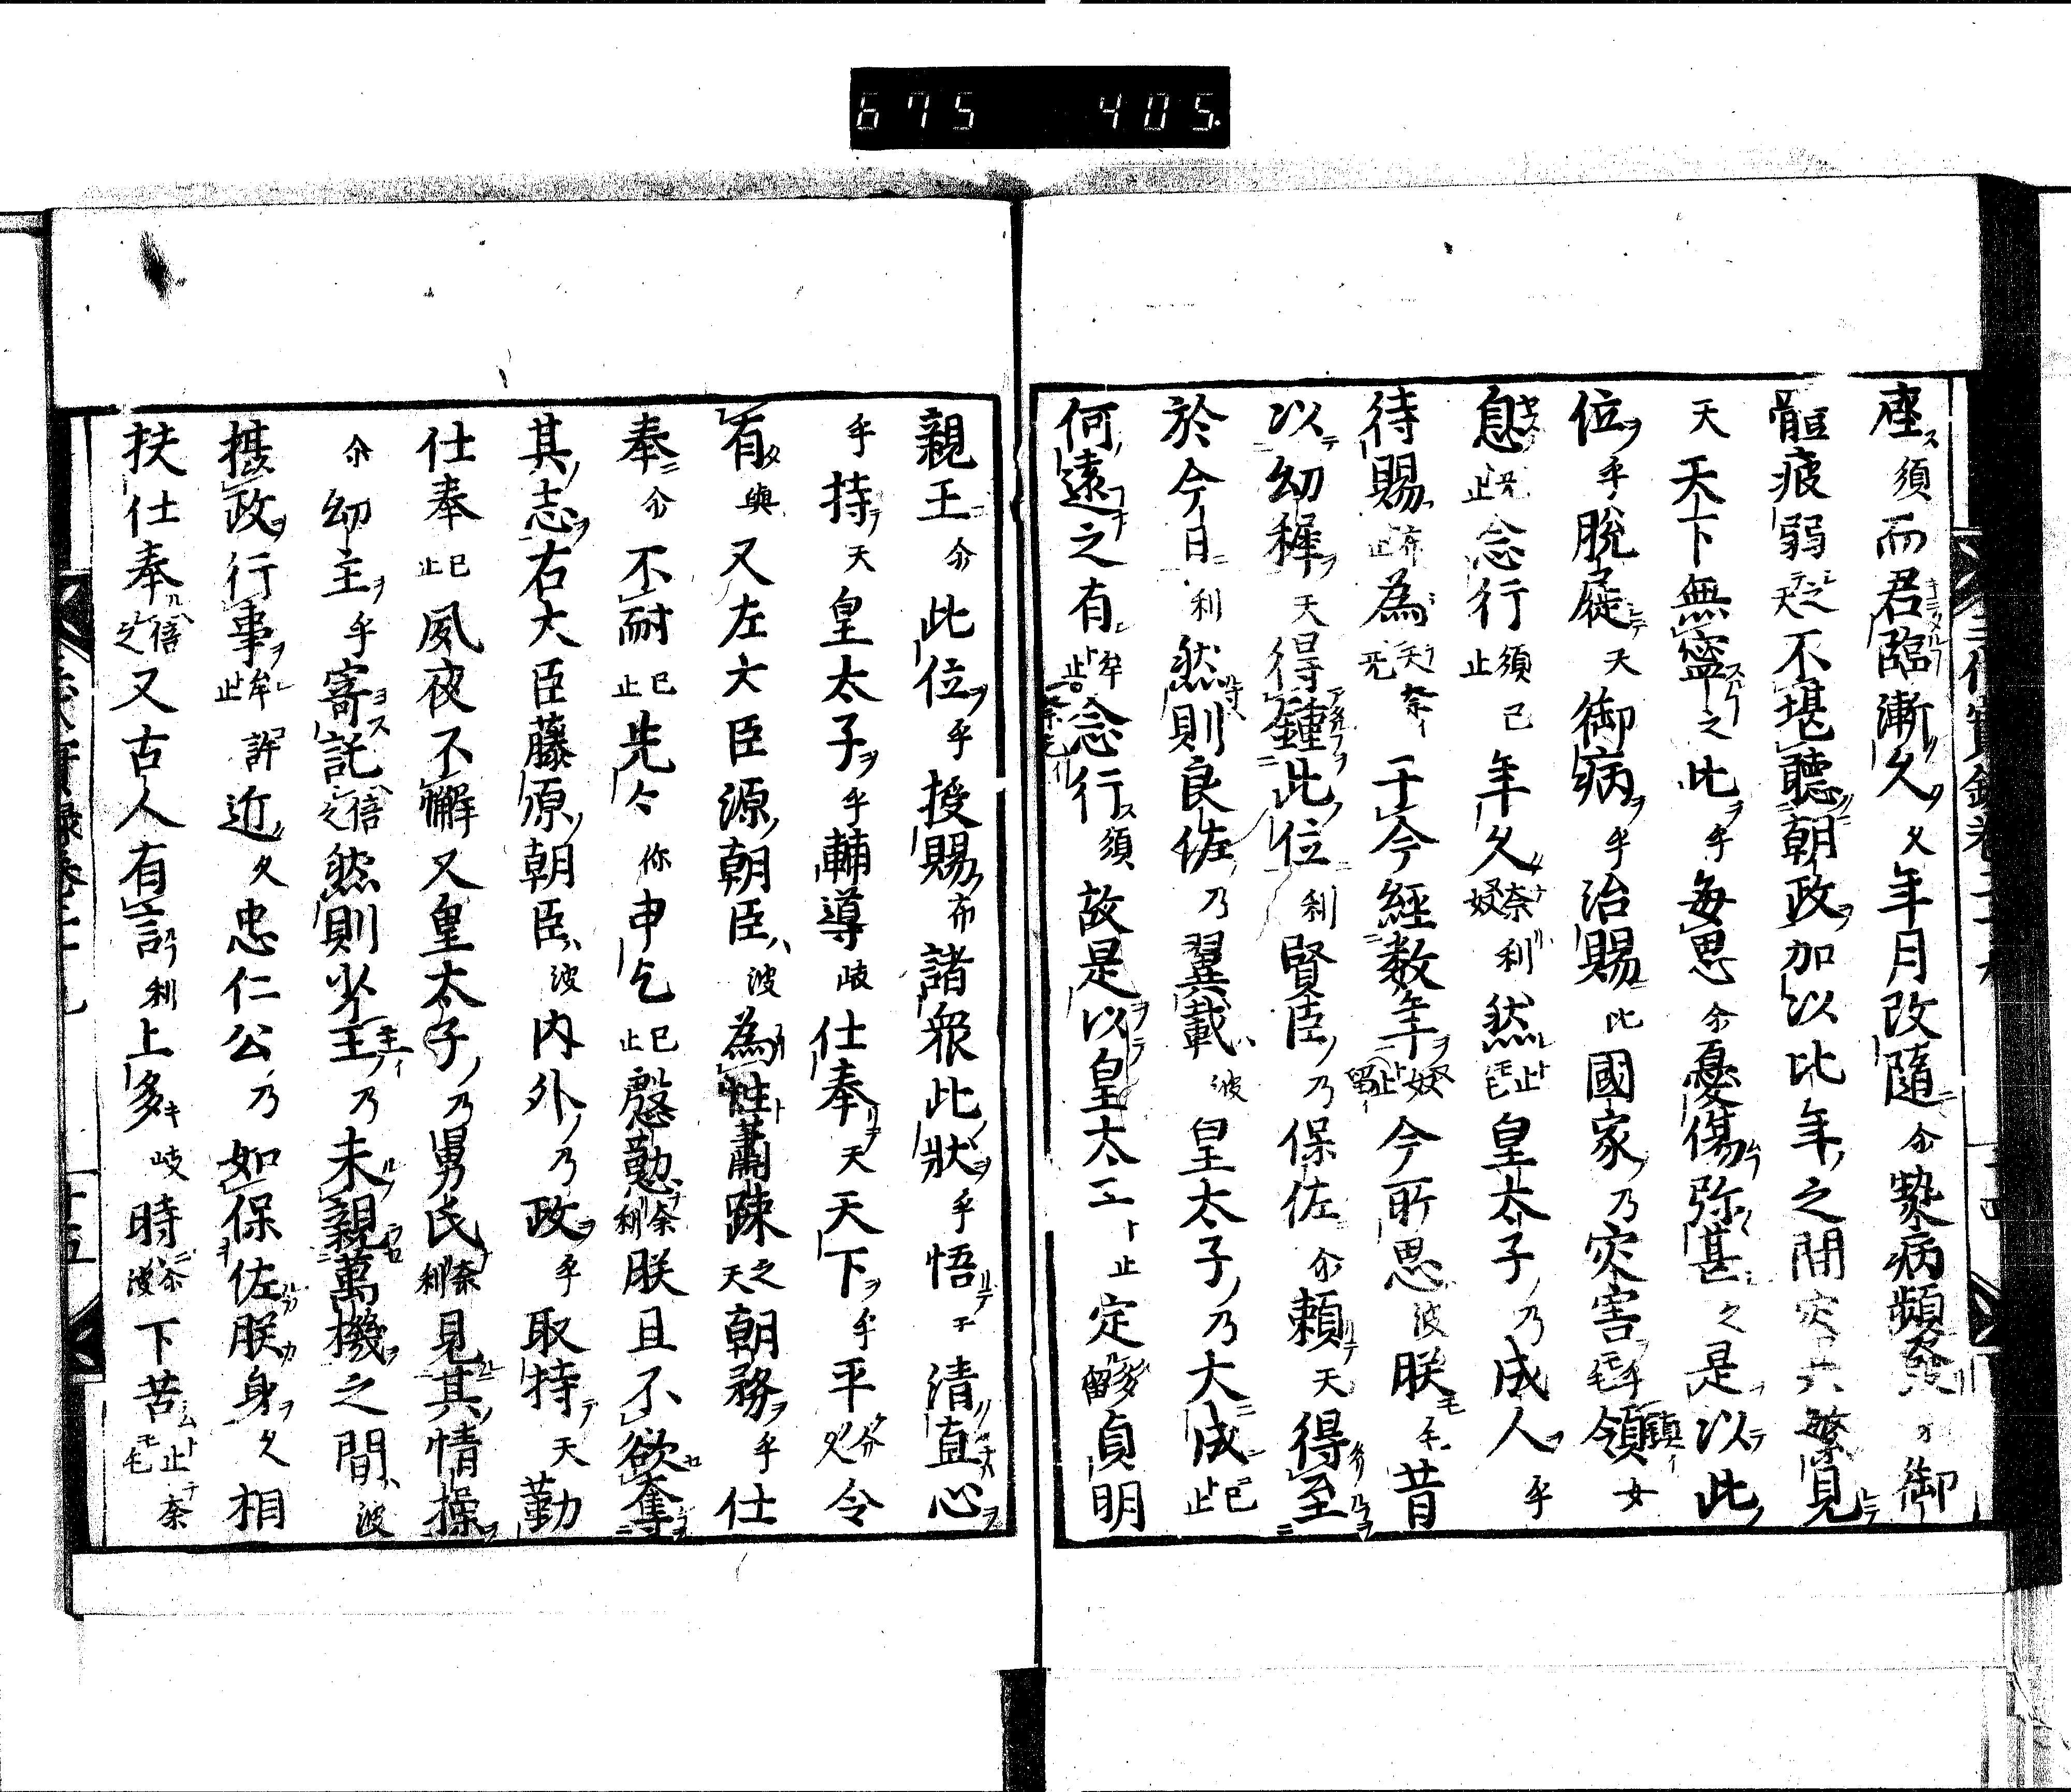 675 405.
座須而君臨漸久久年月改隨尒熱病頻發乃御
體疲弱之天不堪聽朝政加以比年之間灾異繁見
天天下無寧之此乎每思尒憂傷弥甚之是以此
位乎脫屣天御病乎治賜比國家乃灾害乎毛領女
息兂止念行須止已年久奴奈利然止毛皇太子乃成人乎
待賜布止為天兂奈于今經数年奴止留今所思波朕毛昔
以幼稺天得鍾此位利賢臣乃保佐尒賴天得至
於今日利然則良佐乃翼戴波皇太子乃大成已止
何遠之有牟止念行須故是以皇太子止定多留貞明
親王尒此位乎授賜布諸衆此狀乎悟天清直心
乎持天皇太子乎輔導岐仕奉天天下乎平久令
有與又左大臣源朝臣波為性肅踈之天朝務乎仕
奉尒不耐已止先々你申乞已止慇懃奈利朕且不欲奪
其志右大臣藤原朝臣波内外乃政乎取持天勤
仕奉已止夙夜不懈又皇太子乃舅氏奈利見其情操
尒幼主乎寄託信之然則少主乃未親萬機之間波
攝政行事牟止許近久忠仁公乃如保佐朕身久相
扶仕奉信之又古人有言利上多岐時波下苦止毛奈